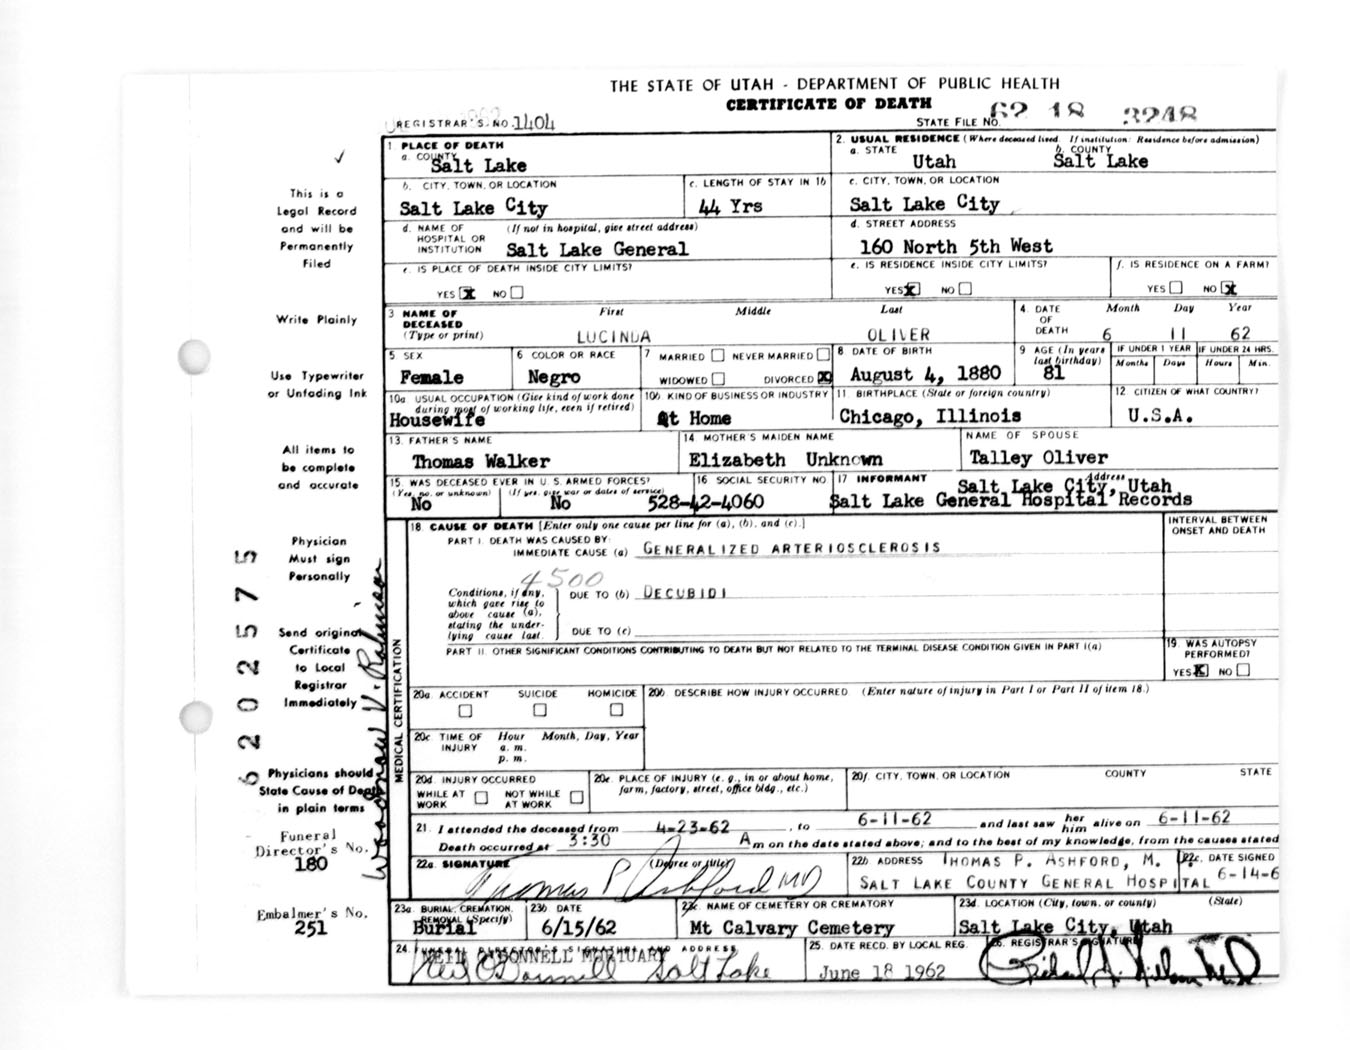 THE STATE OF UTAH - DEPARTMENT OF PUBLIC HEALTH
CERTIFICATE OF DEATH
REGISTRAR'S NO. 1404
STATE FILE NO. 62 18 3248
1. PLACE OF DEATH
a. COUNTY Salt Lake
2. USUAL RESIDENCE (Where deceased lived. If institution: Residence before admission)
a. STATE Utah b. COUNTY Salt Lake
b. CITY, TOWN, OR LOCATION Salt Lake City
c. LENGTH OF STAY IN 1b 44 Yrs
c. CITY, TOWN, OR LOCATION Salt Lake City
d. NAME OF HOSPITAL OR INSTITUTION (If not in hospital, give street address) Salt Lake General
d. STREET ADDRESS 160 North 5th West
e. IS PLACE OF DEATH INSIDE CITY LIMITS? YES X NO
e. IS RESIDENCE INSIDE CITY LIMITS? YES X NO
f. IS RESIDENCE ON A FARM? YES NO X
3 NAME OF DECEASED (Type or print) First LUCINDA Middle Last OLIVER
4. DATE OF DEATH Month 6 Day 11 Year 62
5 SEX Female
6 COLOR OR RACE Negro
7 MARRIED NEVER MARRIED WIDOWED DIVORCED X
8 DATE OF BIRTH August 4, 1880
9 AGE (In years last birthday) 81
IF UNDER 1 YEAR Months Days
IF UNDER 24 HRS. Hours Min.
10a. USUAL OCCUPATION (Give kind of work done during most of working life, even if retired) Housewife
10b KIND OF BUSINESS OR INDUSTRY At Home
11. BIRTHPLACE (State or foreign country) Chicago, Illinois
12 CITIZEN OF WHAT COUNTRY? U.S.A.
13. FATHER'S NAME Thomas Walker
14 MOTHER'S MAIDEN NAME Elizabeth Unknown
NAME OF SPOUSE Talley Oliver
15. WAS DECEASED EVER IN U. S. ARMED FORCES? (Yes, no, or unknown) No (If yes, give war or dates of service) No
16 SOCIAL SECURITY NO 528-42-4060
17 INFORMANT Address Salt Lake City, Utah
Salt Lake General Hospital Records
18 CAUSE OF DEATH [Enter only one cause per line for (a), (b), and (c).]
INTERVAL BETWEEN ONSET AND DEATH
PART I. DEATH WAS CAUSED BY:
IMMEDIATE CAUSE (a) GENERALIZED ARTERIOSCLEROSIS
4500
Conditions, if any, which gave rise to above cause (a), stating the underlying cause last.
DUE TO (b) DECUBIDI
DUE TO (c)
PART II. OTHER SIGNIFICANT CONDITIONS CONTRIBUTING TO DEATH BUT NOT RELATED TO THE TERMINAL DISEASE CONDITION GIVEN IN PART I(a)
19. WAS AUTOPSY PERFORMED? YES X NO
20a. ACCIDENT SUICIDE HOMICIDE
20b. DESCRIBE HOW INJURY OCCURRED (Enter nature of injury in Part I or Part II of item 18.)
20c TIME OF INJURY Hour a. m. p. m. Month, Day, Year
20d. INJURY OCCURRED WHILE AT WORK NOT WHILE AT WORK
20e. PLACE OF INJURY (e. g., in or about home, farm, factory, street, office bldg., etc.)
20f. CITY, TOWN, OR LOCATION COUNTY STATE
21. I attended the deceased from 4-23-62, to 6-11-62 and last saw her him alive on 6-11-62
Death occurred at 3:30 A m on the date stated above; and to the best of my knowledge, from the causes stated
22a. SIGNATURE (Degree or title) Thomas P. Ashford MD
22b ADDRESS THOMAS P. ASHFORD, M.
SALT LAKE COUNTY GENERAL HOSPITAL
22c. DATE SIGNED 6-14-6
23a. BURIAL, CREMATION, REMOVAL (Specify) Burial
23b. DATE 6/15/62
23c. NAME OF CEMETERY OR CREMATORY Mt Calvary Cemetery
23d. LOCATION (City, town, or county) (State) Salt Lake City, Utah
24. FUNERAL DIRECTOR'S SIGNATURE AND ADDRESS
NEIL O'DONNELL MORTUARY
Neil O'Donnell Salt Lake
25. DATE RECD. BY LOCAL REG. June 18 1962
26. REGISTRAR'S SIGNATURE
MEDICAL CERTIFICATION
This is a
Legal Record
and will be
Permanently
Filed
Write Plainly
Use Typewriter
or Unfading Ink
All items to
be complete
and accurate
Physician
Must sign
Personally
Send original
Certificate
to Local
Registrar
Immediately
Physicians should
State Cause of Death
in plain terms
Funeral
Director's No.
180
Embalmer's No.
251
62025755